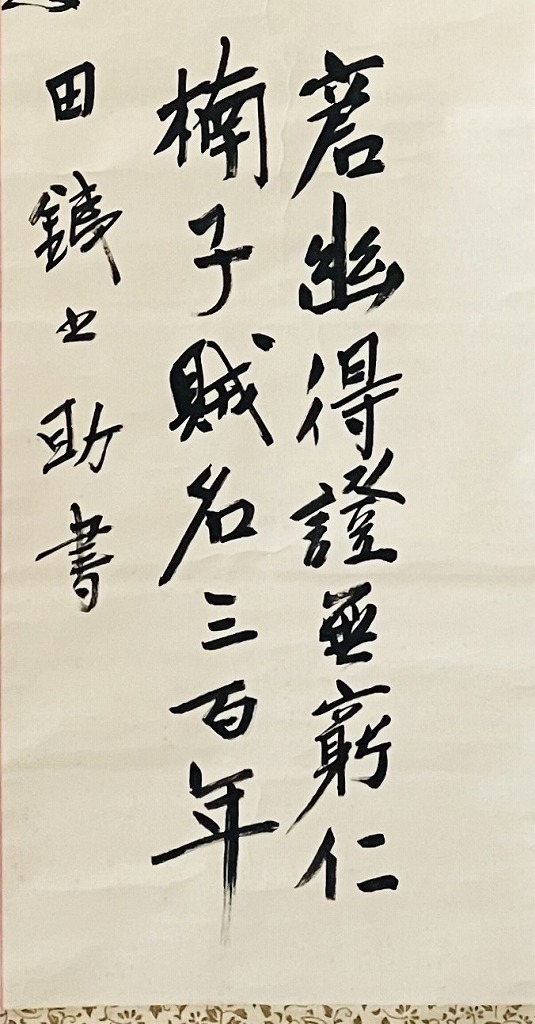 幽得證無窮仁
楠子賊名三百年
田鐵之助書